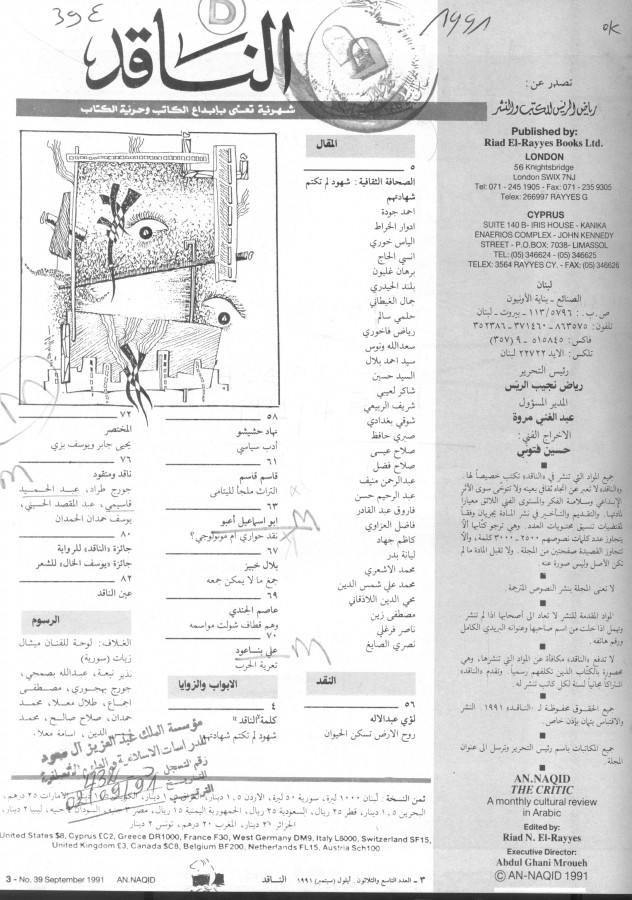 ٣٩٤
١٩٩١
OK
الناقد
شهرية تعنى بإبداع الكاتب وحرية الكتاب
المقال
٥
الصحافة الثقافية: شهود لم تكتم
شهادتهم
احمد جودة
ادوار الخراط
الياس خوري
انسي الحاج
برهان غليون
بلند الحيدري
جمال الغيطاني
حلمي سالم
رياض فاخوري
سعدالله ونوس
سيد احمد بلال
السيد حسين
شاكر لعيبي
شريف الربيعي
شوقي بغدادي
صبري حافظ
صلاح عيسى
صلاح فضل
عبدالرحمن منيف
عبد الرحيم حسن
فاروق عبد القادر
فاضل العزاوي
كاظم جهاد
ليانة بدر
محمد الاشعري
محمد علي شمس الدين
محي الدين اللاذقاني
مصطفى زين
ناصر فرغلي
نصري الصايغ
النقد
٥٦
لؤي عبدالاله
روح الارض تسكن الحيوان
٥٨
نهاد حشيشو
أدب سياسي
٦١
قاسم قاسم
التراث ملجأ لليتامى
٦٣
ابو اسماعيل أعبو
نقد حواري ام مونولوجي؟
٦٧
بلال خبيز
جمع ما لا يمكن جمعه
٦٩
عاصم الجندي
وهم قطاف شولت مواسمه
٧٠
علي بنساعود
تعرية الحرب
الابواب والزوايا
٤
كلمة «الناقد»
شهود لم تكتم شهادتهم
٧٢
المختصر
يحيى جابر ويوسف بزي
٧٦
ناقد ومنقود
جورج طراد، عبد الحميد
قاسيمي، عبد المقصد الحسيني،
يوسف حمدان الحمدان
٨٠
جائزة «الناقد» للرواية
جائزة «يوسف الخال» للشعر
٨٢
عين الناقد
الرسوم
الغلاف: لوحة للفنان ميشال
زيات (سورية)
نذير نبعة، عبدالله بصمجي،
جورج بهجوري، مصطفى
اجماع، طلال معلا، محمد
حمدان، صلاح صالح، محمد
الدين، اسامة معلا.
مؤسسة الملك عبد العزيز آل سعود
للدراسات الاسلامية والعلوم الانسانية
رقم التسجيل
التاريخ
ثمن النسخة: لبنان ١٠٠٠ ليرة، سورية ٥٠ ليرة، الأردن ١,٥ دينار، دينار، الامارات ٢٥ درهم،
البحرين ١,٥ دينار، قطر ٢٥ ريال، السعودية ٢٥ ريال، الجمهورية اليمنية ١٥ ريال، مصر السودان ليبيا ٢ دينار،
الجزائر دينار، المغرب ٢٠ درهم، تونس ٢ دينار
United States $8, Cyprus £C2, Greece DR1000, France F30, West Germany DM9, Italy L8000, Switzerland SF15,
United Kingdom £3, Canada $C8, Belgium BF200, Netherlands FL15, Austria Sch100
3 - No. 39 September 1991 AN.NAQID
٣ - العدد التاسع والثلاثون. أيلول (سبتمبر) ١٩٩١ الناقد
تصدر عن:
رياض الريس للكتب والنشر
Published by:
Riad El-Rayyes Books Ltd.
LONDON
56 Knightsbridge
London SWIX 7NJ
Tel: 071 - 245 1905 - Fax: 071 - 235 9305
Telex: 266997 RAYYES G
CYPRUS
SUITE 140 B- IRIS HOUSE - KANIKA
ENAERIOS COMPLEX - JOHN KENNEDY
STREET - P.O.BOX: 7038- LIMASSOL
TEL: (05) 346624 - (05) 346625
TELEX: 3564 RAYYES CY. - FAX: (05) 346626
لبنان
الصنائع - بناية الأونيون
ص.ب.: ١١٣/٥٧٩٦ - بيروت - لبنان
تلفون: ٨٦٣٥٧٥ - ٣٧١٤٦٠ - ٣٥٢٣٨٦
فاكس: ٥١٥٨٤٥ - ٩ (٣٥٧)
تلكس: الايد ٢٢٧٢٢ لبنان
رئيس التحرير
رياض نجيب الريّس
المدير المسؤول
عبد الغني مروة
الاخراج الفني:
حسين فتوس
جميع المواد التي تنشر في «الناقد» تكتب خصيصاً لها.
و«الناقد» لا تعبر عن اتجاه ثقافي بعينه ولا تتوخّى سوى الأثر
الإبداعي وسلامة الفكر والمستوى الفني اللائق معياراً
لمادتها. والتقديم والتأخير في نشر المادة يجريان وفقاً
لمقتضيات تنسيق محتويات العدد. وهي ترجو كتابها ألاّ
يتجاوز عدد كلمات نصوصهم ٢٥٠٠ - ٣٠٠٠ كلمة، وألاّ
تتجاوز القصيدة صفحتين من المجلة. ولا تقبل المادة ما لم
تكن الأصل وليس صورة عنه.
لا تعنى المجلة بنشر النصوص المترجمة.
المواد المقدمة للنشر لا تعاد الى أصحابها اذا لم تنشر
وتهمل اذا خلت من اسم صاحبها وعنوانه البريدي الكامل
ورقم هاتفه.
لا تدفع «الناقد» مكافأة عن المواد التي تنشرها، وهي
محصورة بالكتّاب الذين تكلفهم رسمياً. وتقدم «الناقد»
اشتراكاً مجانياً لسنة لكل كاتب تنشر له.
جميع الحقوق محفوظة لـ «الناقد» ١٩٩١. النشر
والاقتباس ينهان بإذن خاص.
جميع المكاتبات باسم رئيس التحرير وترسل الى عنوان
المجلة.
AN.NAQID
THE CRITIC
A monthly cultural review
in Arabic
Edited by:
Riad N. El-Rayyes
Executive Director:
Abdul Ghani Mroueh
© AN-NAQID 1991